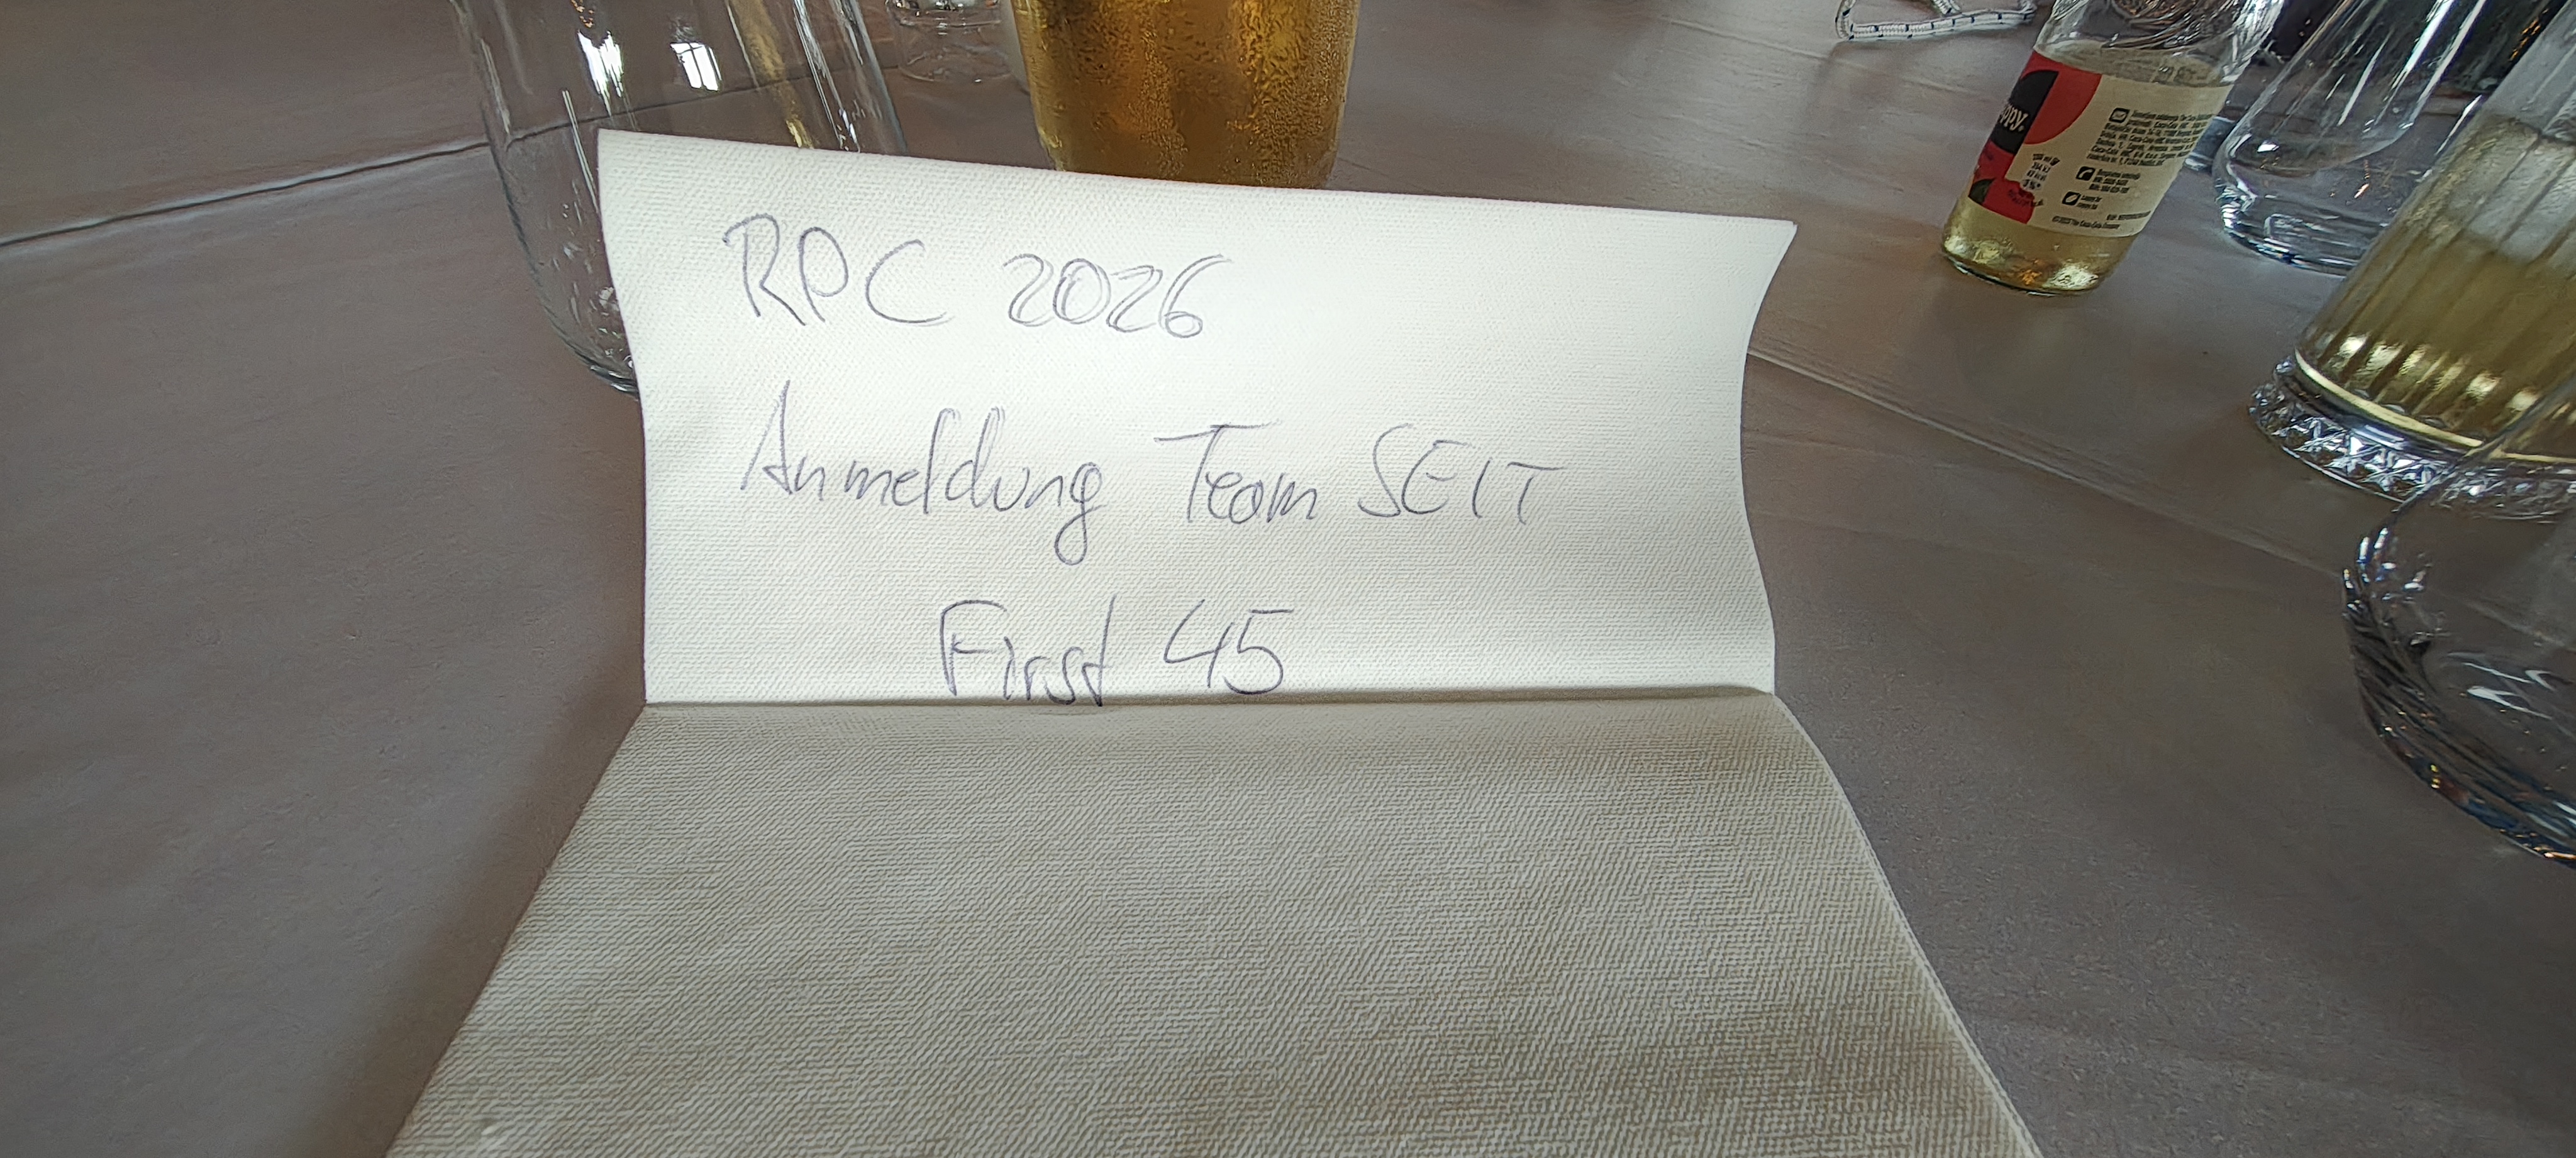 RPC 2026
Anmeldung Team SEIT
First 45